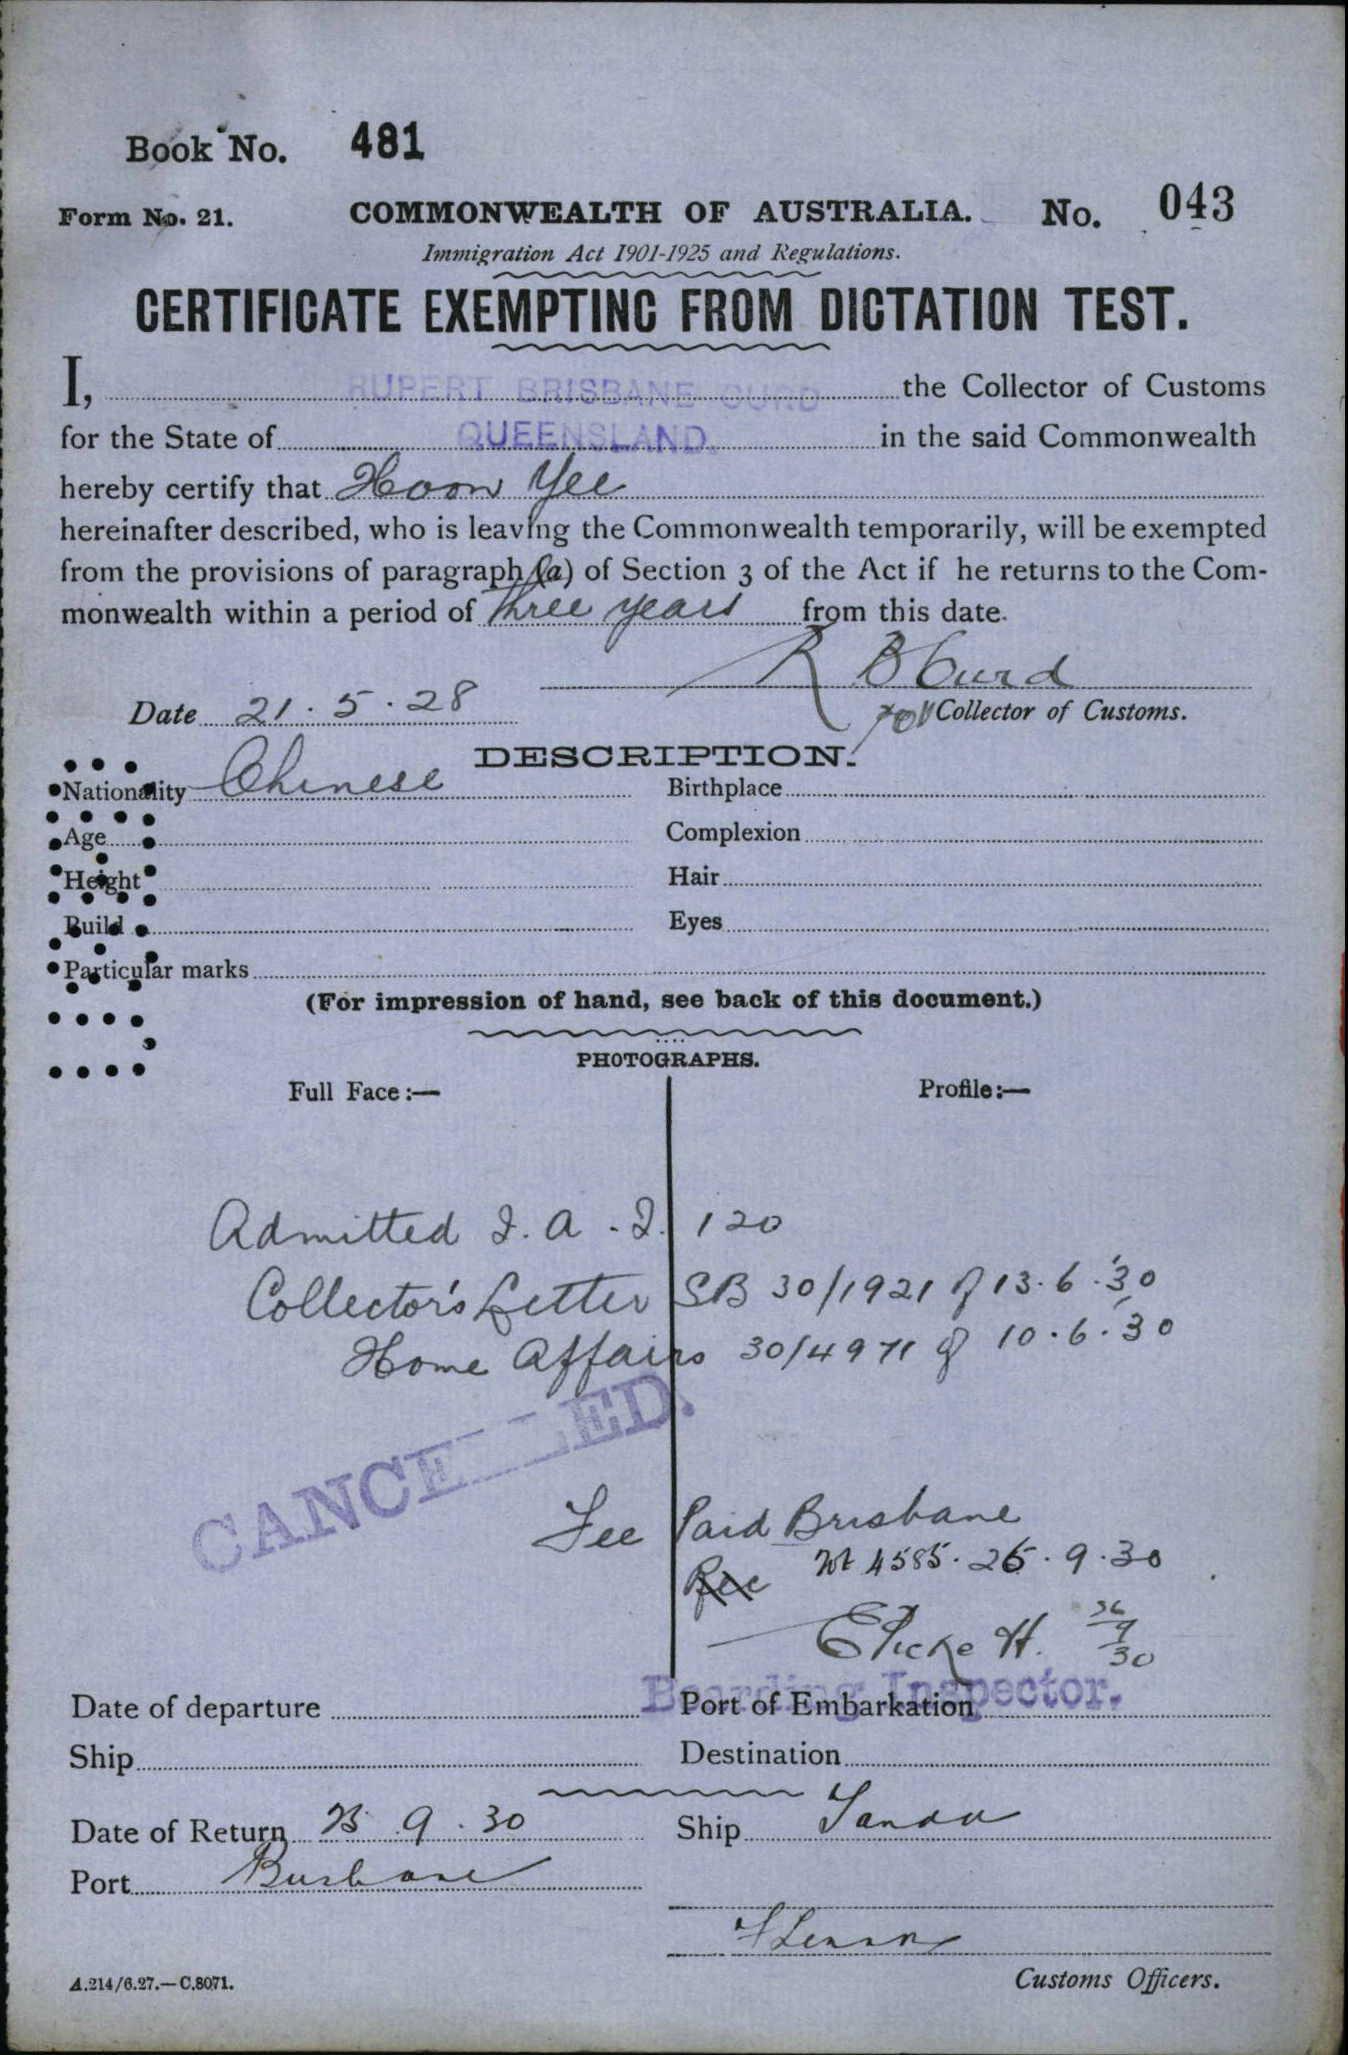 Book No. 481
Form No. 21. COMMONWEALTH OF AUSTRALIA. No. 043
Immigration Act 1901-1925 and Regulations.
CERTIFICATE EXEMPTING FROM DICTATION TEST.
I, RUPERT BRISBANE CURD the Collector of Customs
for the State of QUEENSLAND. in the said Commonwealth
hereby certify that Hoon Yee
hereinafter described, who is leaving the Commonwealth temporarily, will be exempted
from the provisions of paragraph (a) of Section 3 of the Act if he returns to the Com-
monwealth within a period of three years from this date.
R B Curd
Date 21.5.28 for Collector of Customs.
DESCRIPTION.
Nationality Chinese Birthplace
Age Complexion
Height Hair
Build Eyes
Particular marks
(For impression of hand, see back of this document.)
PHOTOGRAPHS.
Full Face:— Profile:—
Admitted I.A.I. 120
Collector's Letter SB 30/1921 of 13.6.'30
Home Affairs 30/4971 of 10.6.'30
CANCELLED.
Fee Paid Brisbane
Rec 4585. 26.9.30
26/9/30
Boarding Inspector.
Date of departure Port of Embarkation
Ship Destination
Date of Return 25.9.30 Ship Tanda
Port Brisbane
Customs Officers.
A.214/6.27.—C.8071.